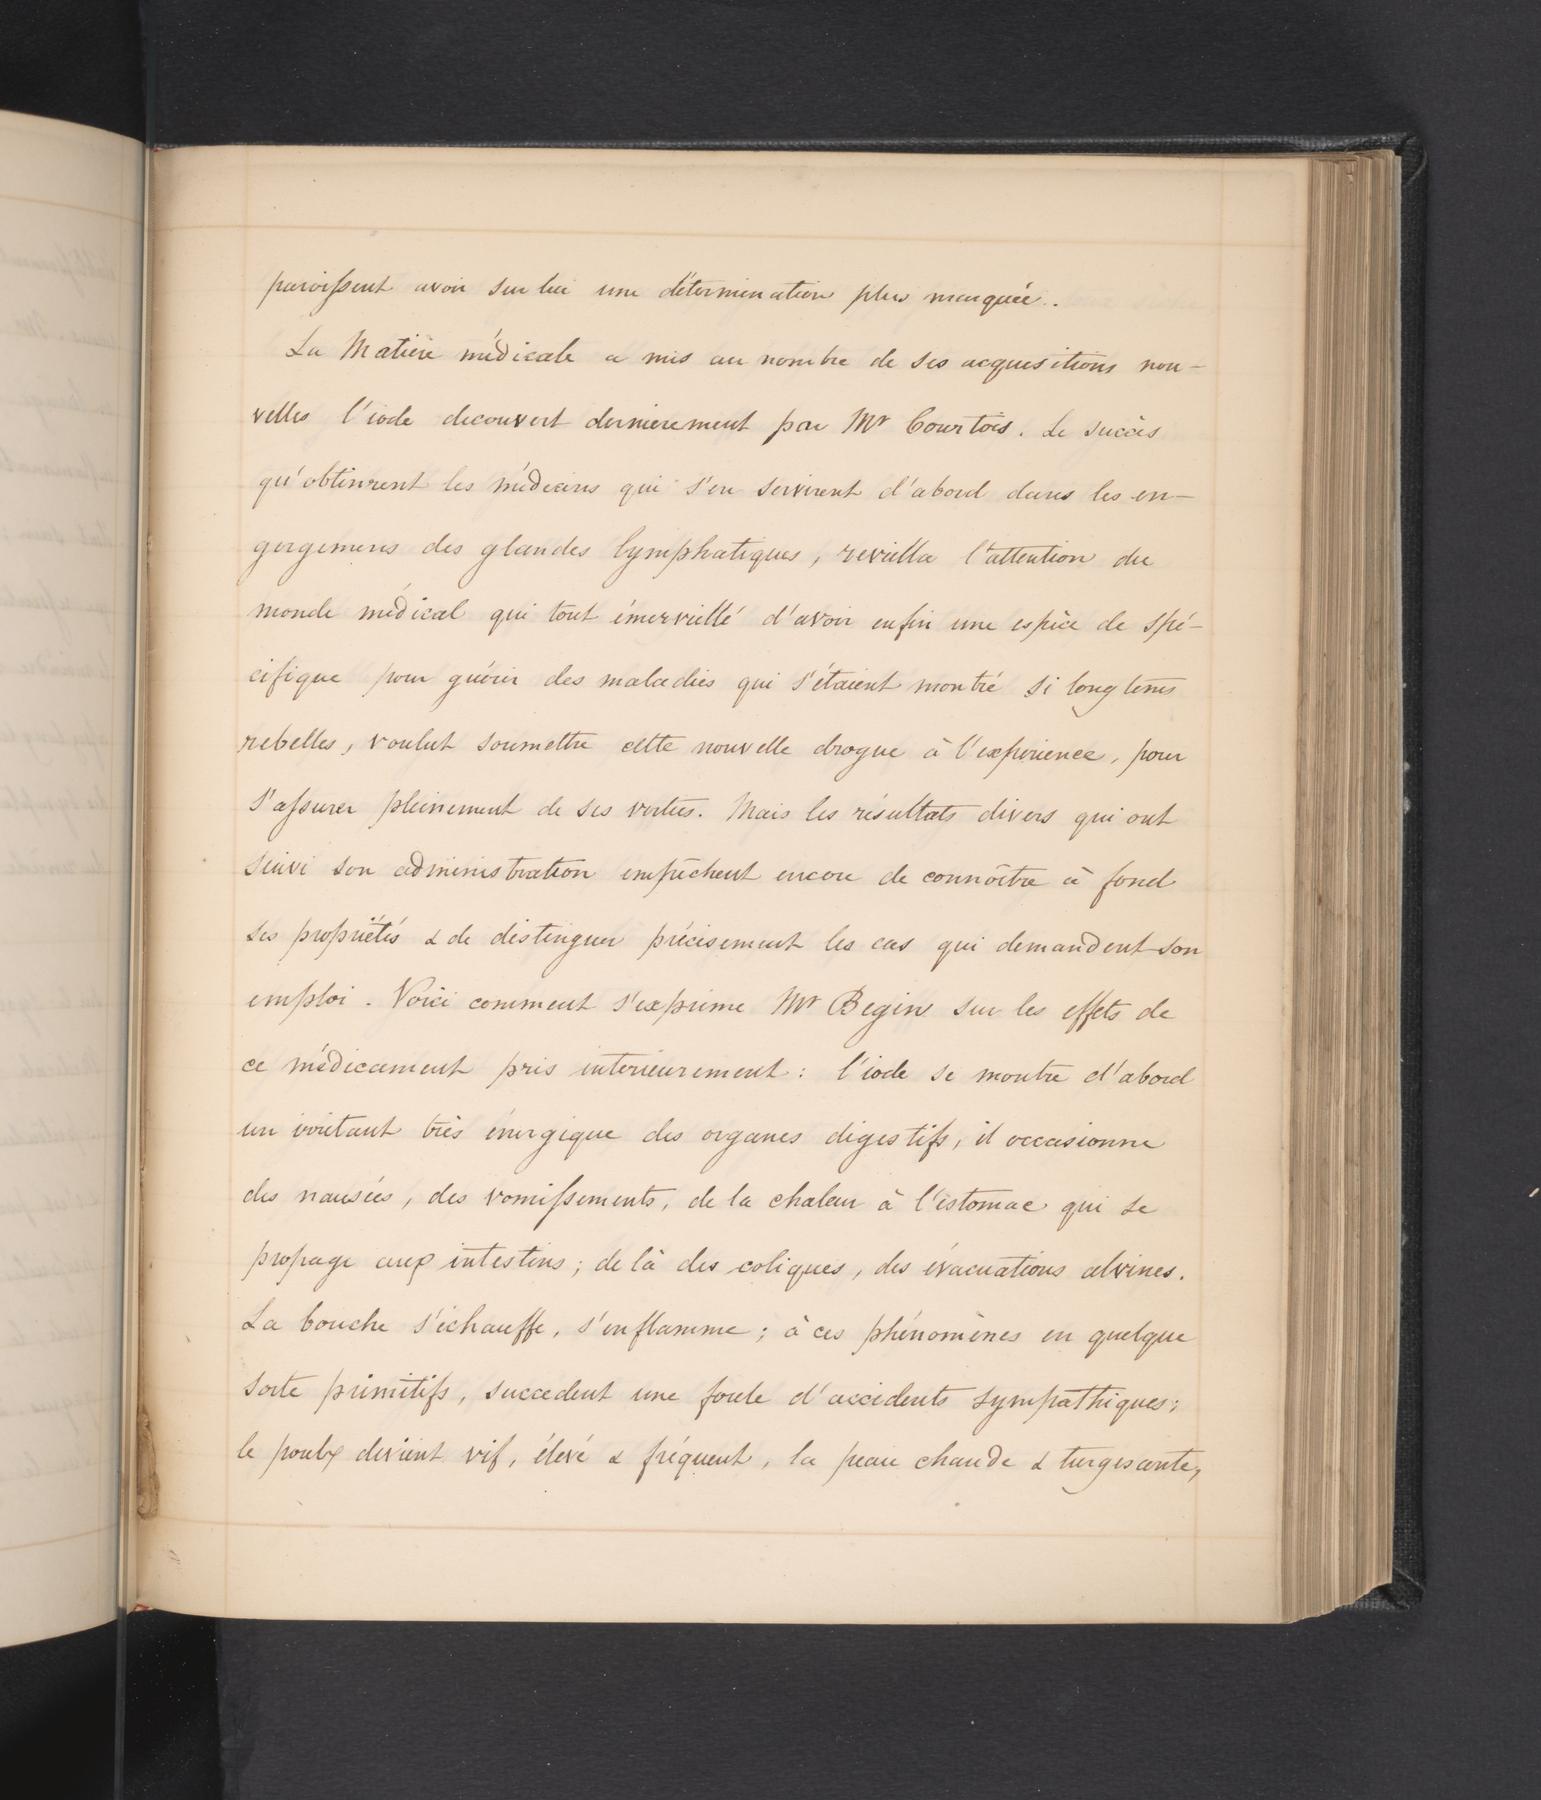 paroissent avoir sur lui une détermination plus marquée.
La Matière médicale a mis au nombre de ses acquisitions nou-
velles l'iode decouvert dernierement par Mr Courtois. Le succès
qu'obtinrent les médecins qui s'en servirent d'abord dans les en-
gorgemens des glandes lymphatiques, reveilla l'attention du
monde médical qui tout émerveillé d'avoir enfin une espèce de spé-
cifique pour guérir des maladies qui s'étaient montré si longtems
rebelles, voulut soumettre cette nouvelle drogue à l'expérience, pour
s'assurer pleinement de ses vertus. Mais les résultats divers qui ont
suivi son administration empêchent encore de connoître à fond
ses propriétés & de distinguer précisement les cas qui demandent son
emploi. Voici comment s'exprime Mr Begin sur les effets de
ce médicament pris interieurement : l'iode se montre d'abord
un irritant très énergique des organes digestifs, il occasionne
des nausées, des vomissements, de la chaleur à l'estomac qui se
propage aux intestins ; de là des coliques, des évacuations alvines.
La bouche s'échauffe, s'enflamme ; à ces phénomènes en quelque
sorte primitifs, succedent une foule d'accidents sympathiques ;
le poulx devient vif, élevé & fréquent, la peau chaude & turgescente,